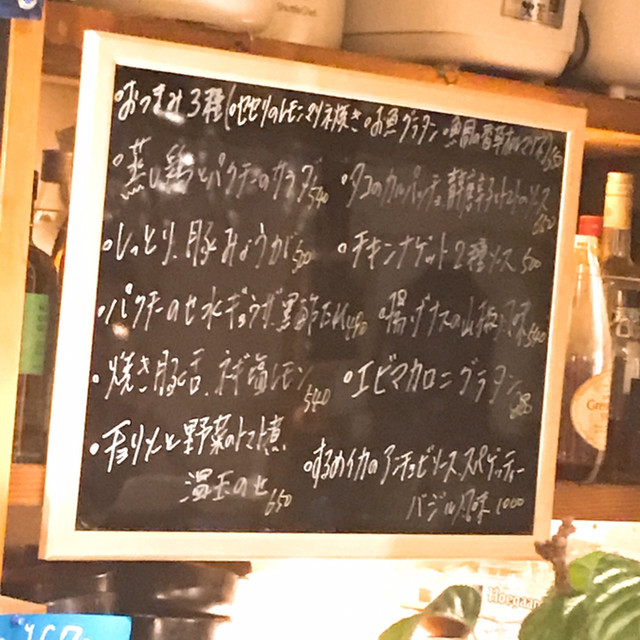 おつまみ3種(セセリのレモンマリネ焼き・お魚グラタン
・蒸し鶏とパクチーのサラダ 540
・タコのカルパッチョ トマトソース
・しっとり、豚みょうが
・チキンナゲット2種ソース 500
・パクチーのせ水ギョウザ黒酢だれ 490
・揚げナスの山椒風味 540
・焼き豚舌、ネギ塩レモン 540
・エビマカロニグラタン
・チョリソーと野菜のトマト煮
温玉のせ 650
・するめイカのアンチョビソース、スパゲッティー
バジル風味 1000
Hoegaar